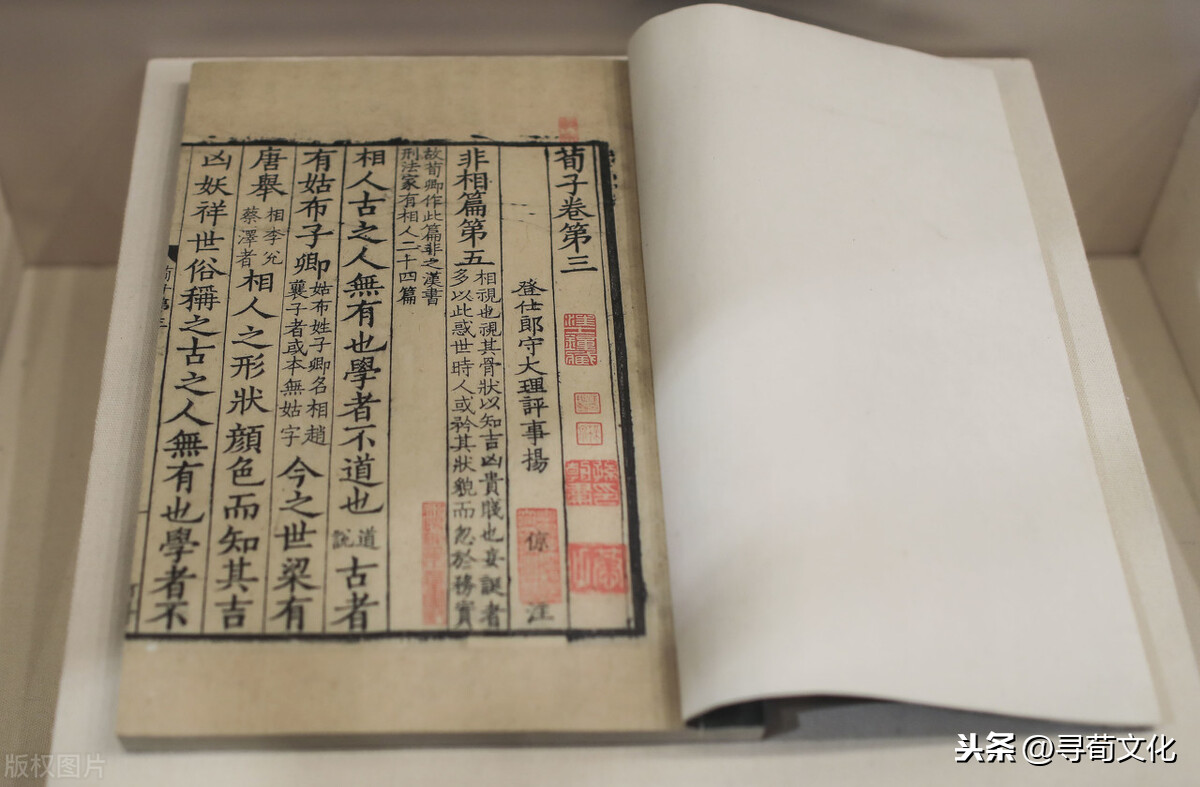 荀子卷第三
登仕郎守大理評事揚倞注
非相篇第五相視也視其骨狀以知吉凶貴賤也妄誕者
多以此惑世時人或矜其狀貌而忽於務實
故荀卿作此篇非之漢書
刑法家有相人二十四篇
相人古之人無有也學者不道也道說古者
有姑布子卿姑布姓子卿名相趙
襄子者或本無姑字今之世梁有
唐舉相李兌
蔡澤者相人之形狀顏色而知其吉
凶妖祥世俗稱之古之人無有也學者不
头条 @寻荀文化
版权图片